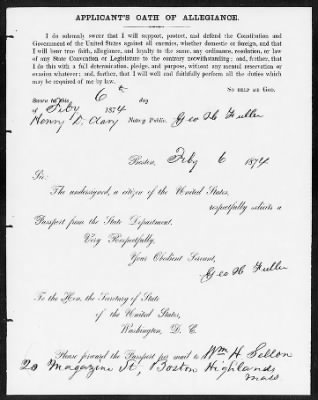 APPLICANT'S OATH OF ALLEGIANCE.
I do solemnly swear that I will support, protect, and defend the Constitution and
Government of the United States against all enemies, whether domestic or foreign, and that
I will bear true faith, allegiance, and loyalty to the same, any ordinance, resolution, or law
of any State Convention or Legislature to the contrary notwithstanding; and, further, that
I do this with a full determination, pledge, and purpose, without any mental reservation or
evasion whatever; and, further, that I will well and faithfully perform all the duties which
may be required of me by law.
SO HELP ME GOD.
Sworn to this 6th day
of Feby 1874
Henry D. Clary Notary Public. Geo H Fuller
Boston, Feby 6 1874
Sir:
The undersigned, a citizen of the United States,
respectfully solicits a
Passport from the State Department.
Very Respectfully,
Your Obedient Servant,
Geo H Fuller
To the Hon. the Secretary of State
of the United States,
Washington, D. C.
Please forward the Passport per mail to Wm H. Sellon
20 Magazine St, Boston Highlands
Mass